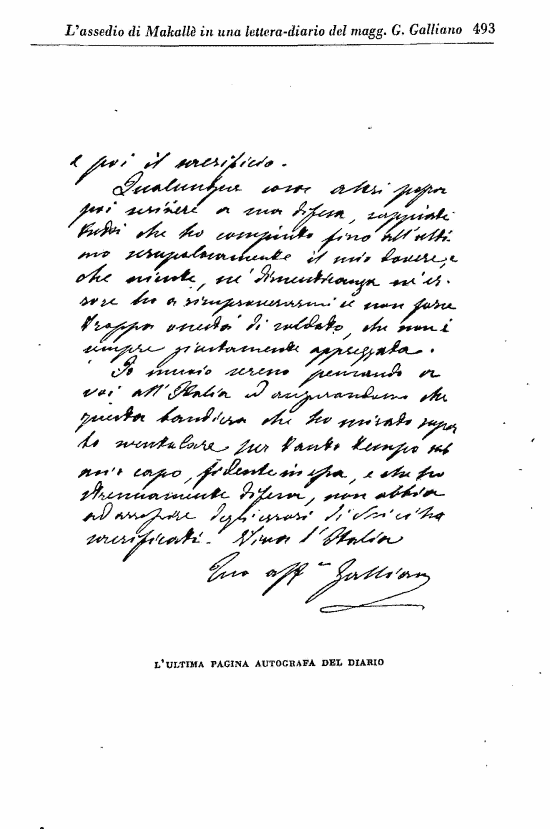 L'assedio di Makallè in una lettera-diario del magg. G. Galliano 493
e poi il sacrificio.
Qualunque cosa altri possa
poi scrivere a mia difesa, sappiate
tutti che ho compiuto fino all'ulti-
mo scrupolosamente il mio dovere, e
che niente, ne' dimenticanza ne' er-
rore ho a rimproverarmi se non forse
troppa onestà di soldato, che non è
sempre giustamente apprezzata.
Io muoio sereno pensando a
voi all'Italia ed augurandomi che
questa bandiera che ho mirato
sventolare per tanto tempo sul
mio capo, fidente in essa, e che ho
strenuamente difesa, non abbia
ad arrossire degli errori di chi ci ha
sacrificati. Viva l'Italia
Tuo aff Galliano
L'ULTIMA PAGINA AUTOGRAFA DEL DIARIO